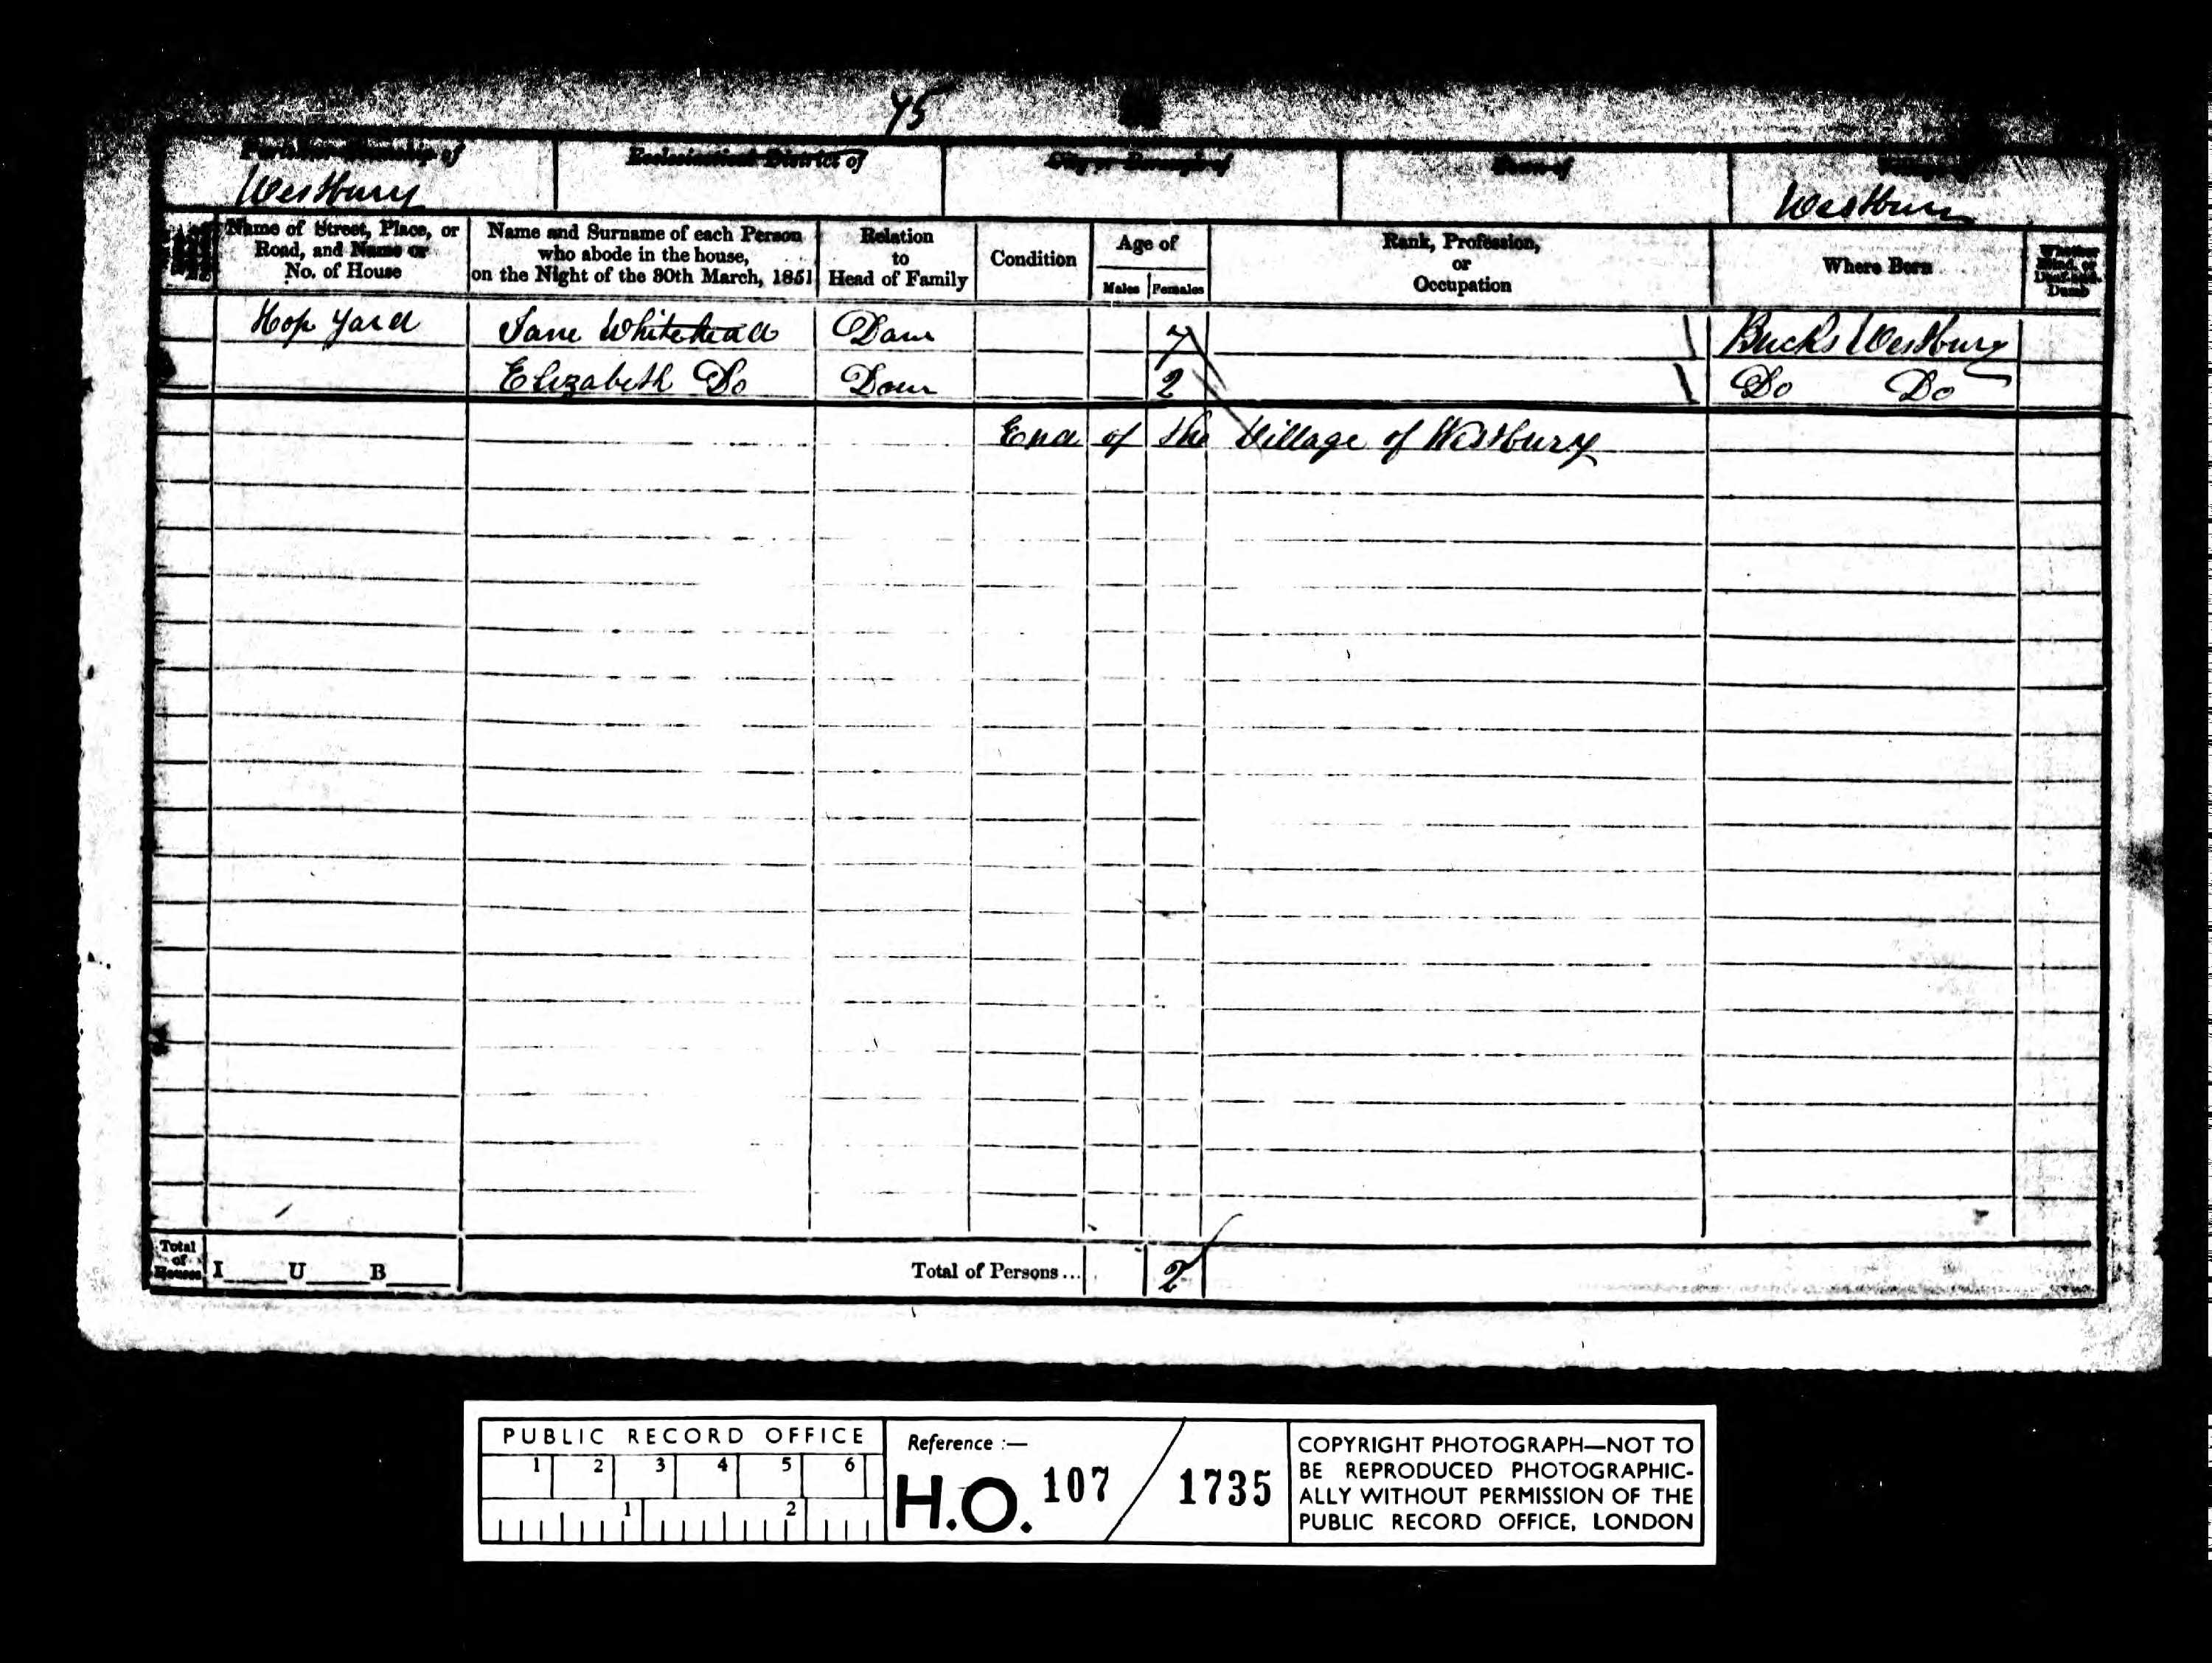 45
Parish or Township of
Ecclesiastical District of
City or Borough of
Town of
Village of
Westbury
Westbury
Name of Street, Place, or Road, and Name or No. of House
Name and Surname of each Person who abode in the house, on the Night of the 30th March, 1851
Relation to Head of Family
Condition
Age of
Males Females
Rank, Profession, or Occupation
Where Born
Whether Blind, or Deaf-and-Dumb
Hop Yard Jane Whitehead Daur 7 Bucks Westbury
Elizabeth Do Daur 2 Do Do
End of the Village of Westbury
Total of Houses I U B Total of Persons... 2
PUBLIC RECORD OFFICE
1 2 3 4 5 6
1 2
Reference :—
H.O. 107 / 1735
COPYRIGHT PHOTOGRAPH—NOT TO
BE REPRODUCED PHOTOGRAPHIC-
ALLY WITHOUT PERMISSION OF THE
PUBLIC RECORD OFFICE, LONDON